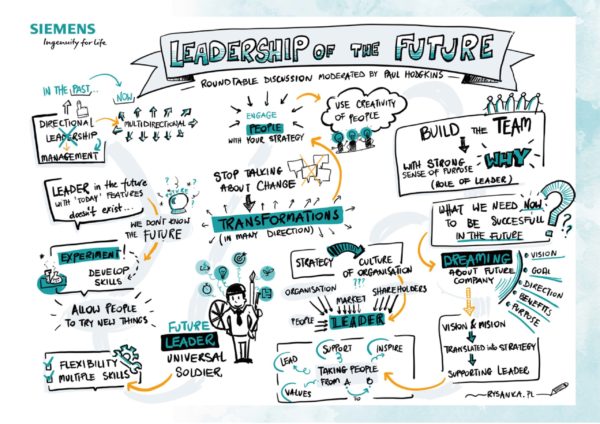 SIEMENS
Ingenuity for life
LEADERSHIP OF THE FUTURE
ROUNDTABLE DISCUSSION MODERATED BY PAUL HODGKINS
IN THE PAST...
NOW
DIRECTIONAL
LEADERSHIP
MANAGEMENT
MULTIDIRECTIONAL
LEADER in the future
WITH "TODAY" FEATURES
doesn't exist...
WE DON'T KNOW
THE FUTURE
FUTURE
EXPERIMENT!
DEVELOP
SKILLS
ALLOW PEOPLE
TO TRY NEW THINGS
FLEXIBILITY
MULTIPLE SKILLS
ENGAGE
PEOPLE
WITH YOUR STRATEGY
USE CREATIVITY
OF PEOPLE
STOP TALKING
ABOUT CHANGE
TRANSFORMATIONS
(IN MANY DIRECTION)
FUTURE
LEADER
UNIVERSAL
SOLDIER
STRATEGY
CULTURE
OF ORGANISATION
???
ORGANISATION
MARKET
SHAREHOLDERS
PEOPLE
LEADER
LEAD
SUPPORT
INSPIRE
TAKING PEOPLE
FROM A TO B
VALUES
BUILD THE TEAM
WITH STRONG
SENSE OF PURPOSE
WHY
(ROLE OF LEADER)
WHAT WE NEED NOW
TO BE SUCCESFULL
IN THE FUTURE
???
DREAMING
ABOUT FUTURE
COMPANY
VISION
GOAL
DIRECTION
BENEFITS
PURPOSE
VISION & MISION
TRANSLATED into STRATEGY
SUPPORTING LEADER
RYSANKA.PL